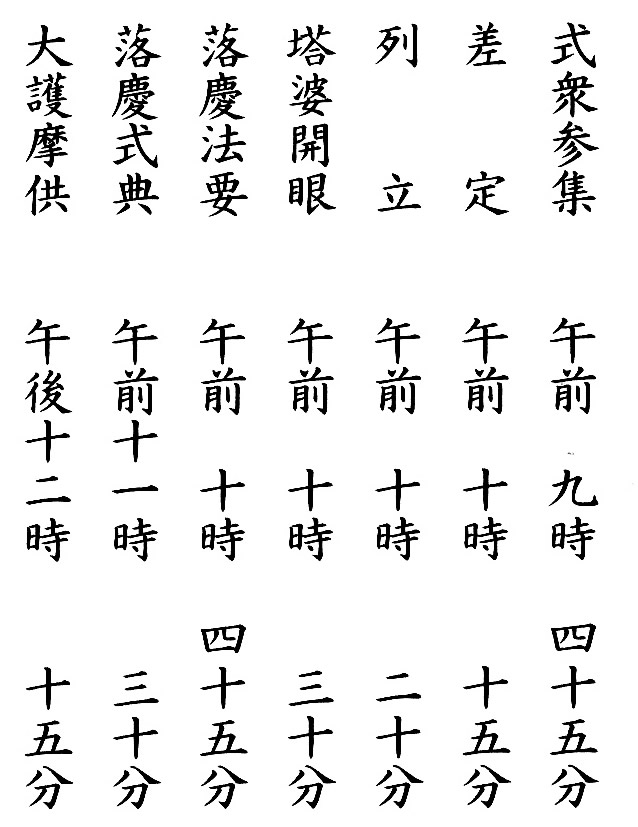 式衆参集　午前　九時　四十五分
差　定　午前　十時　十五分
列　立　午前　十時　二十分
塔婆開眼　午前　十時　三十分
落慶法要　午前　十時　四十五分
落慶式典　午前十一時　三十分
大護摩供　午後十二時　十五分